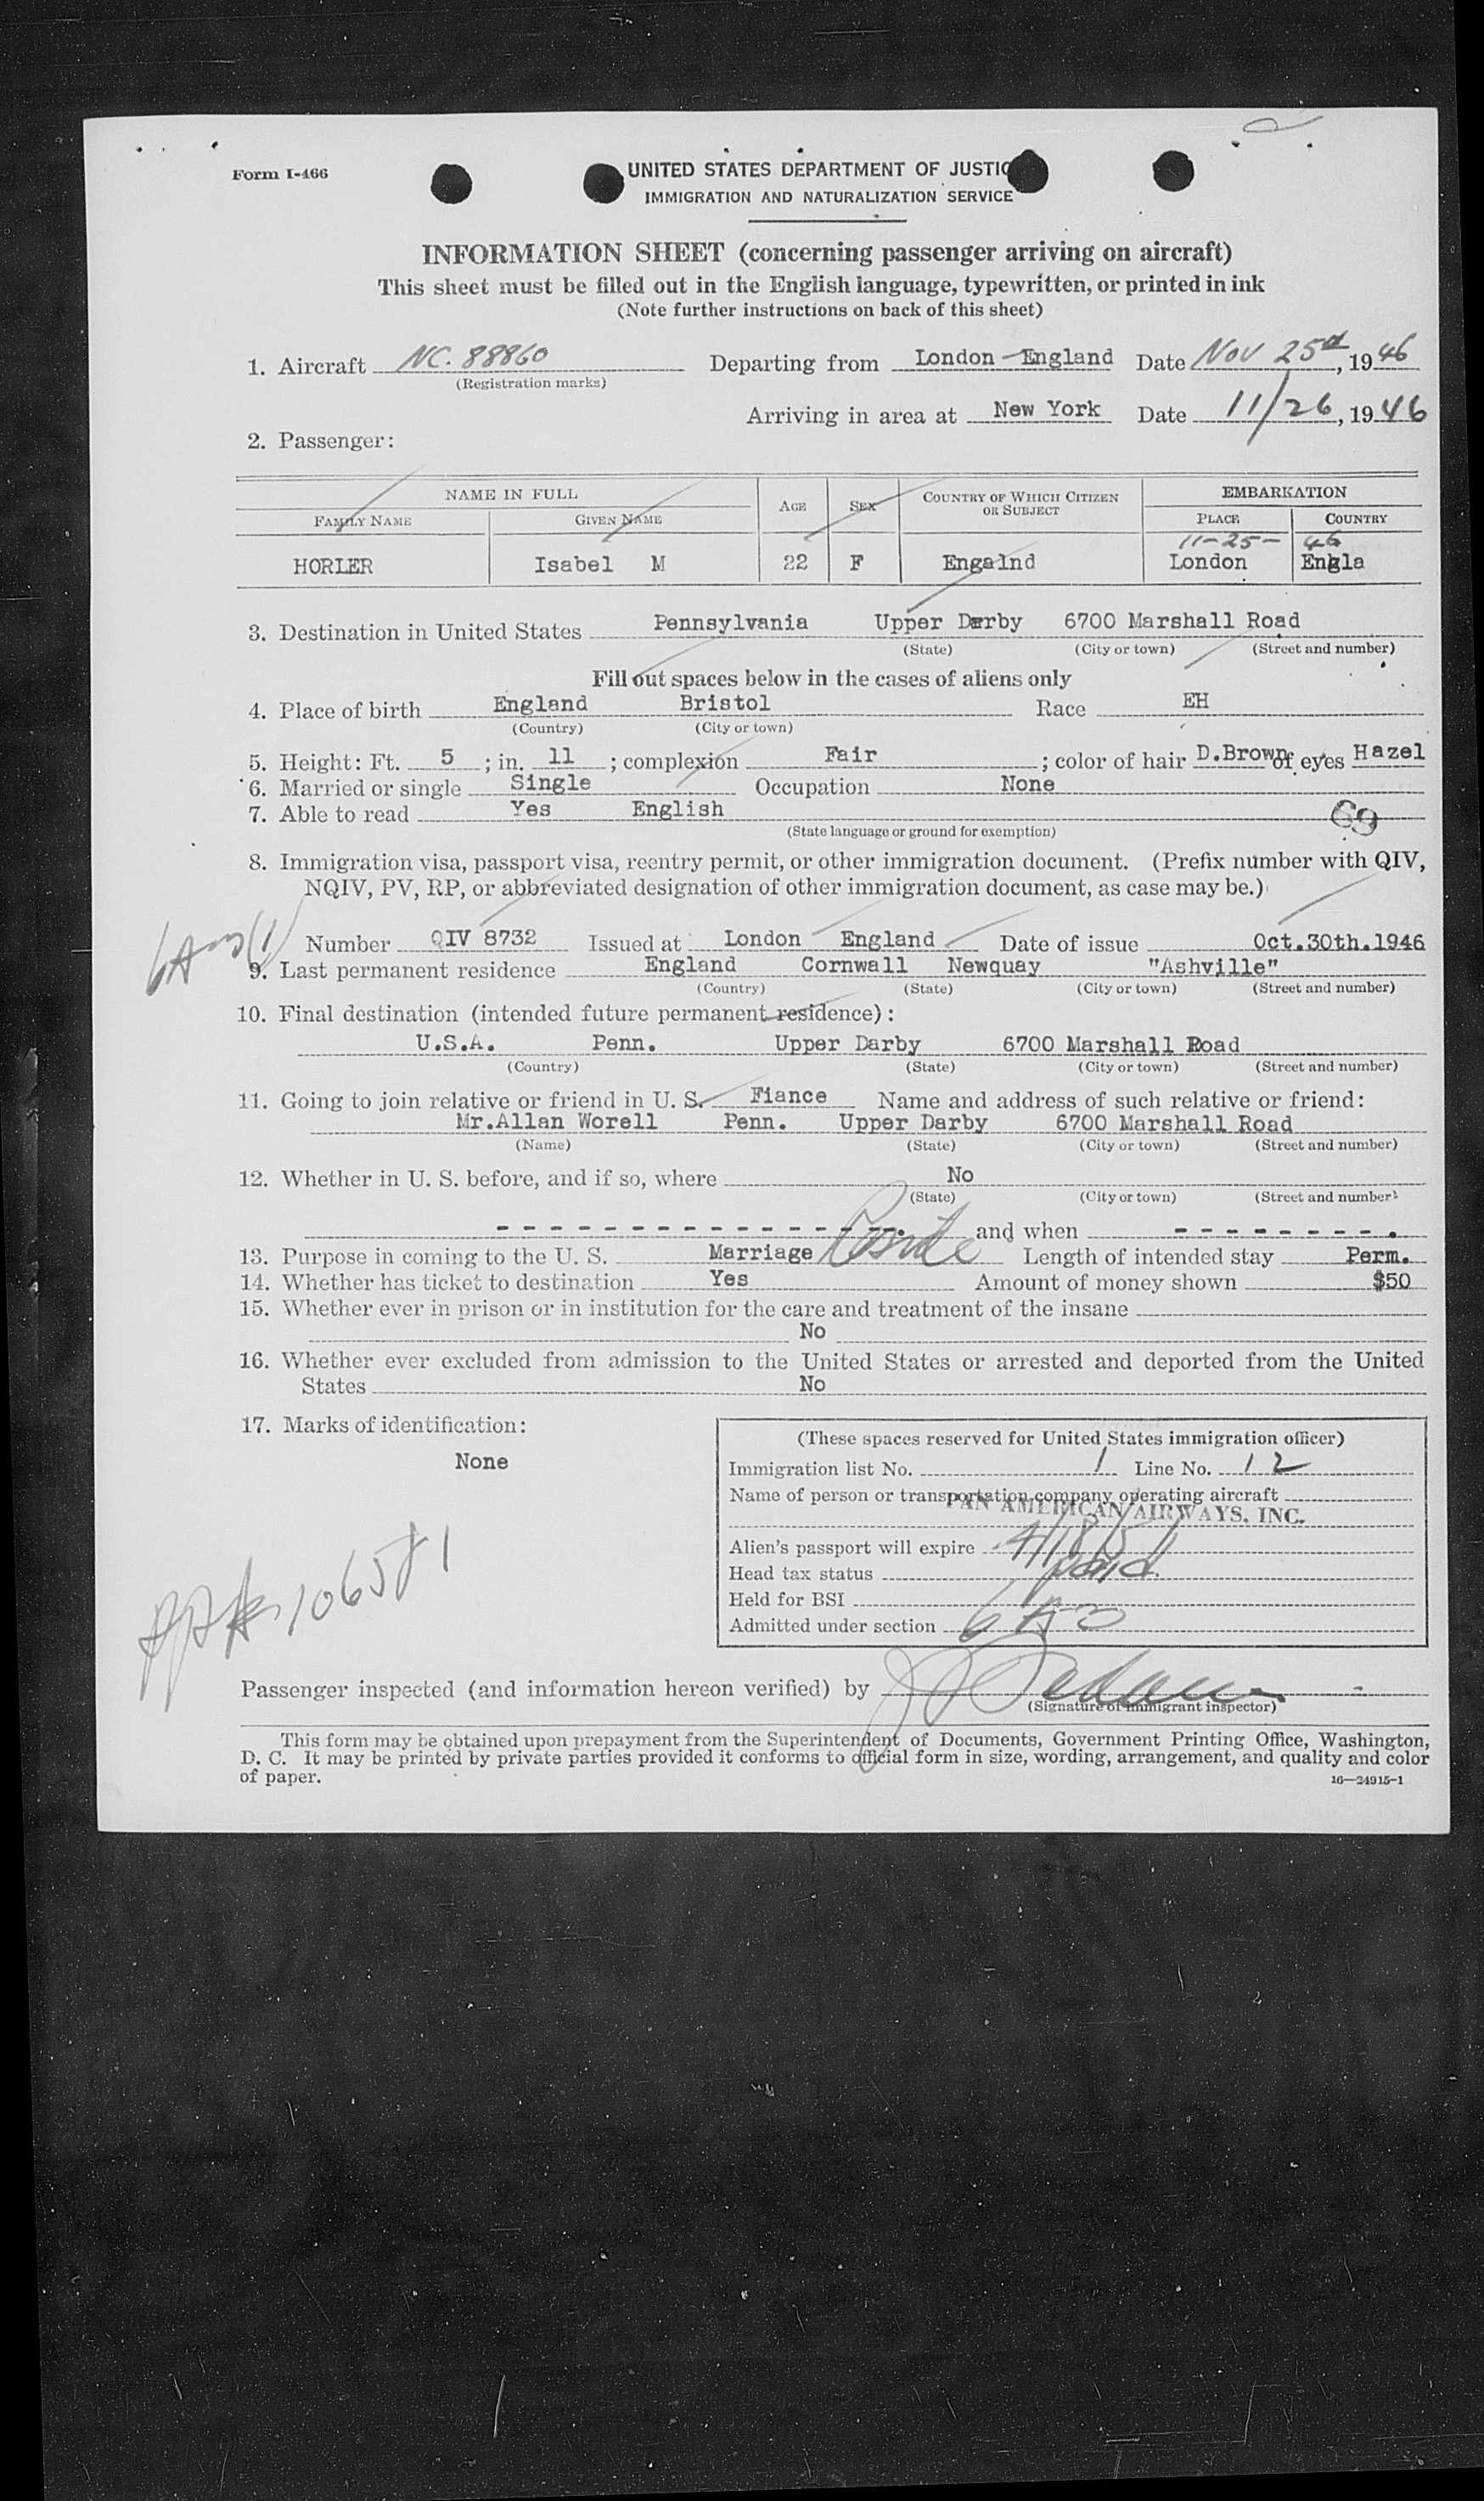 Form I-466
UNITED STATES DEPARTMENT OF JUSTIC
IMMIGRATION AND NATURALIZATION SERVICE
INFORMATION SHEET (concerning passenger arriving on aircraft)
This sheet must be filled out in the English language, typewritten, or printed in ink
(Note further instructions on back of this sheet)
1. Aircraft NC. 88860 Departing from London - England Date Nov 25th, 1946
(Registration marks)
Arriving in area at New York Date 11/26, 1946
2. Passenger:
NAME IN FULL AGE SEX COUNTRY OF WHICH CITIZEN OR SUBJECT EMBARKATION
FAMILY NAME GIVEN NAME PLACE COUNTRY
11-25-46
HORLER Isabel M 22 F Engalnd London Engla
3. Destination in United States Pennsylvania Upper Darby 6700 Marshall Road
(State) (City or town) (Street and number)
Fill out spaces below in the cases of aliens only
4. Place of birth England Bristol Race EH
(Country) (City or town)
5. Height: Ft. 5 ; in. 11 ; complexion Fair ; color of hair D.Brown of eyes Hazel
6. Married or single Single Occupation None
7. Able to read Yes English
(State language or ground for exemption)
69
8. Immigration visa, passport visa, reentry permit, or other immigration document. (Prefix number with QIV,
NQIV, PV, RP, or abbreviated designation of other immigration document, as case may be.)
Number QIV 8732 Issued at London England Date of issue Oct.30th.1946
9. Last permanent residence England Cornwall Newquay "Ashville"
(Country) (State) (City or town) (Street and number)
10. Final destination (intended future permanent residence):
U.S.A. Penn. Upper Darby 6700 Marshall Road
(Country) (State) (City or town) (Street and number)
11. Going to join relative or friend in U. S. Fiance Name and address of such relative or friend:
Mr.Allan Worell Penn. Upper Darby 6700 Marshall Road
(Name) (State) (City or town) (Street and number)
12. Whether in U. S. before, and if so, where No
(State) (City or town) (Street and number)
- - - - - - - - - - - - - - - - - - . and when - - - - - - - - - .
13. Purpose in coming to the U. S. Marriage Length of intended stay Perm.
14. Whether has ticket to destination Yes Amount of money shown $50
15. Whether ever in prison or in institution for the care and treatment of the insane
No
16. Whether ever excluded from admission to the United States or arrested and deported from the United
States No
17. Marks of identification:
None
(These spaces reserved for United States immigration officer)
Immigration list No. 1 Line No. 12
Name of person or transportation company operating aircraft
PAN AMERICAN AIRWAYS, INC.
Alien's passport will expire
Head tax status paid
Held for BSI
Admitted under section
106581
Passenger inspected (and information hereon verified) by
(Signature of immigrant inspector)
This form may be obtained upon prepayment from the Superintendent of Documents, Government Printing Office, Washington,
D. C. It may be printed by private parties provided it conforms to official form in size, wording, arrangement, and quality and color
of paper.
16—24915-1